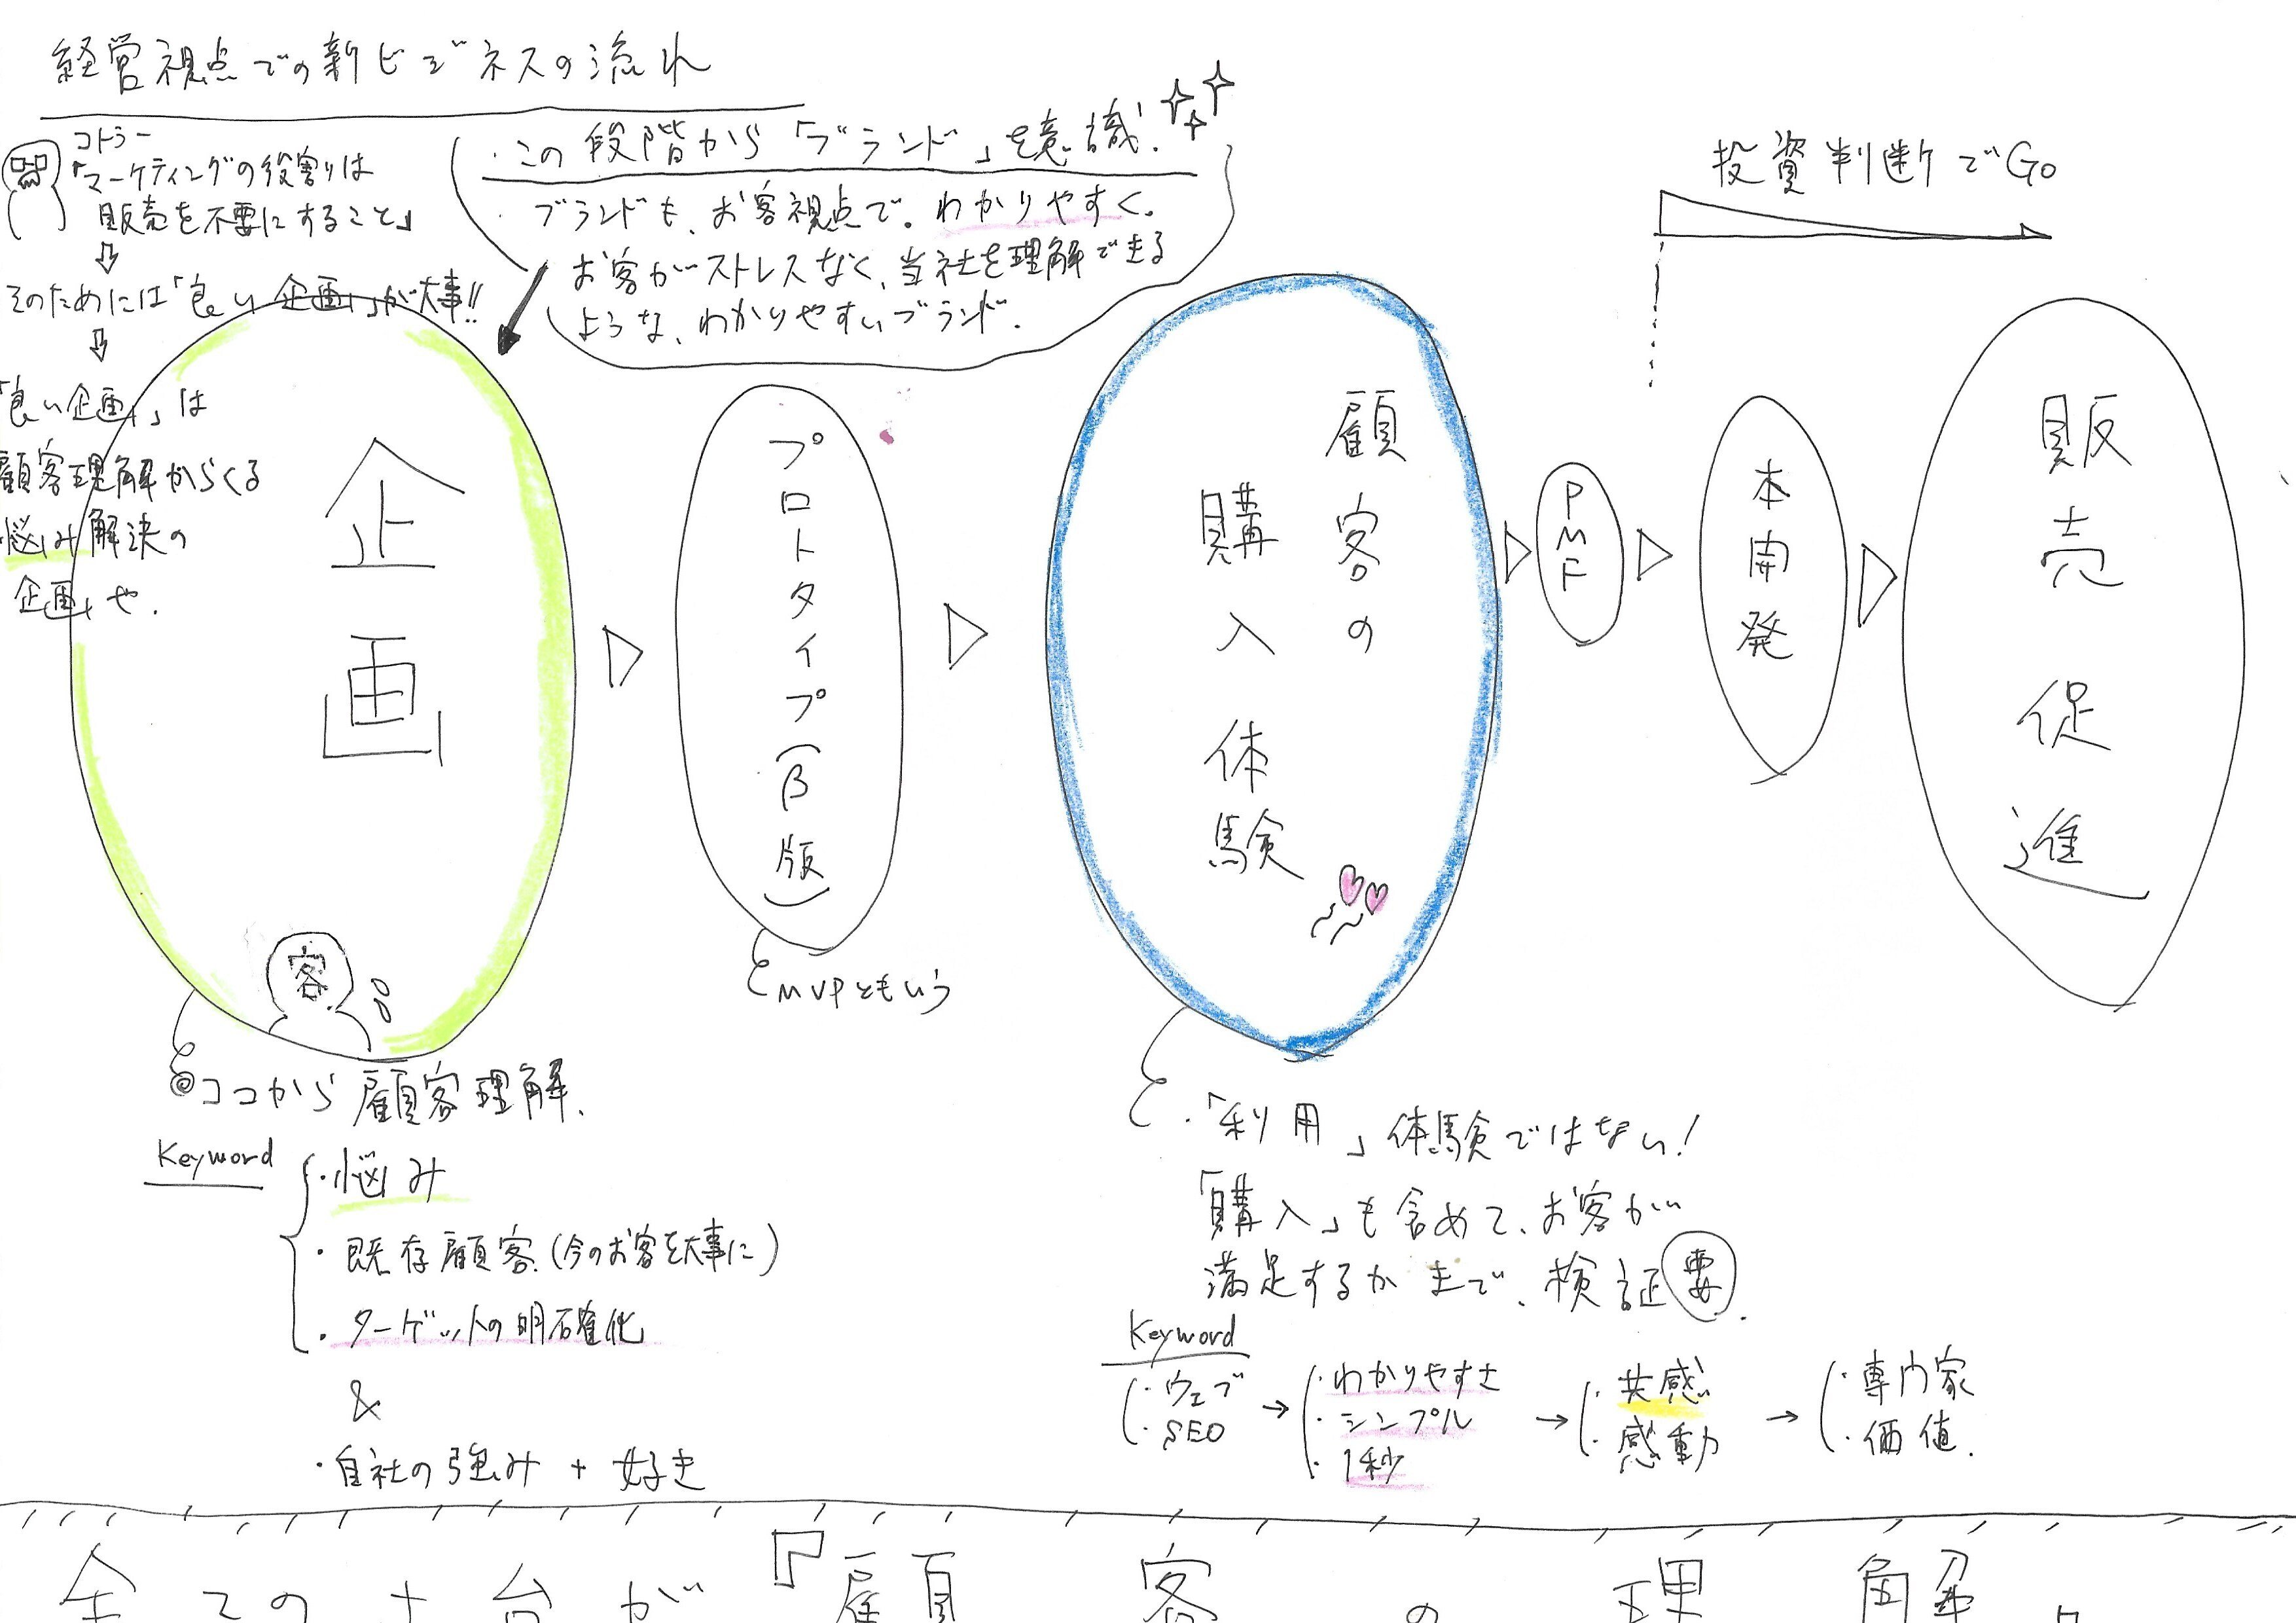 経営視点での新ビジネスの流れ
コトラー
「マーケティングの役割りは
販売を不要にすること」
⇩
そのためには「良い企画」が大事!!
⇩
「良い企画」は
顧客理解からくる
悩み解決の
企画や.
・この段階から「ブランド」を意識!
・ブランドも、お客視点で。わかりやすく。
お客がストレスなく、当社を理解できる
ような、わかりやすいブランド.
投資判断でGo
企画
客
プロトタイプ(β版)
MVPともいう
顧客の
購入体験
PMF
本開発
販売促進
◎ココから顧客理解.
Keyword
・悩み
・既存顧客(今のお客を大事に)
・ターゲットの明確化
&
・自社の強み + 好き
・「利用」体験ではない!
「購入」も含めて、お客が
満足するかまで、検証要.
Keyword
・ウェブ
・SEO
→
・わかりやすさ
・シンプル
・1秒
→
・共感
・感動
→
・専門家
・価値.
全ての土台が『顧客の理解